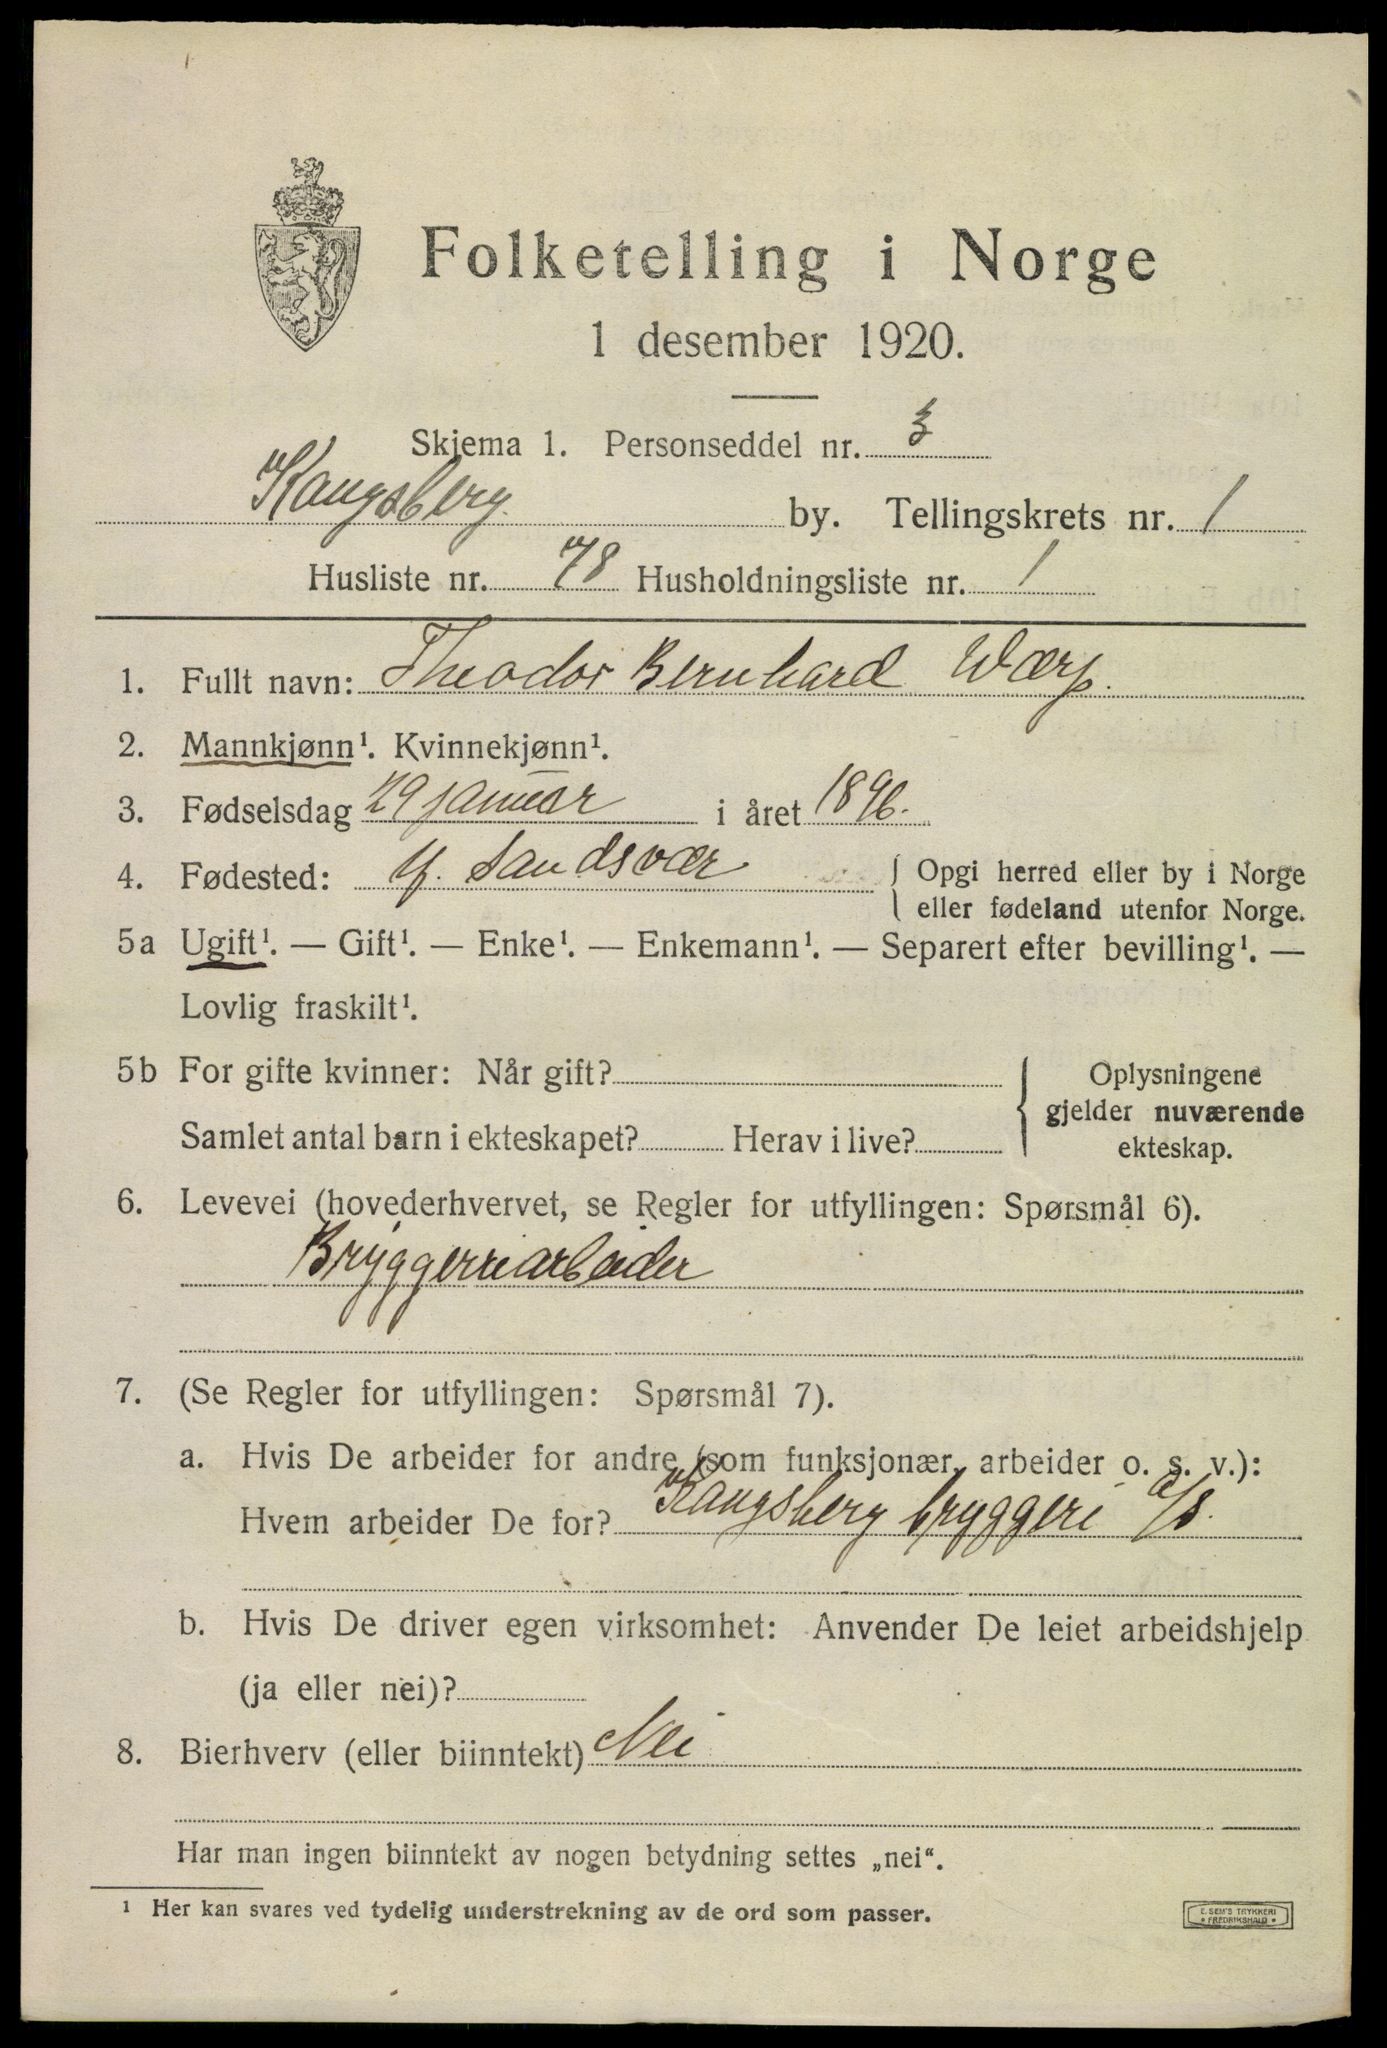 Folketelling i Norge
1 desember 1920.
Skjema 1. Personseddel nr. 3
Kongsberg by. Tellingskrets nr. 1
Husliste nr. 78 Husholdningsliste nr. 1
1. Fullt navn: Theodor Bernhard Wærp.
2. Mannkjønn¹. Kvinnekjønn¹.
3. Fødselsdag 29 januar i året 1896.
4. Fødested: Y. Sandsvær { Opgi herred eller by i Norge
eller fødeland utenfor Norge.
5a Ugift¹. — Gift¹. — Enke¹. — Enkemann¹. — Separert efter bevilling¹. —
Lovlig fraskilt¹.
5b For gifte kvinner: Når gift? { Oplysningene
gjelder nuværende
Samlet antal barn i ekteskapet? Herav i live? ekteskap.
6. Levevei (hovederhvervet, se Regler for utfyllingen: Spørsmål 6).
Bryggerriarbeider
7. (Se Regler for utfyllingen: Spørsmål 7).
a. Hvis De arbeider for andre (som funksjonær, arbeider o. s. v.):
Hvem arbeider De for? Kongsberg bryggeri a/s.
b. Hvis De driver egen virksomhet: Anvender De leiet arbeidshjelp
(ja eller nei)?
8. Bierhverv (eller biinntekt) Nei
Har man ingen biinntekt av nogen betydning settes „nei“.
¹ Her kan svares ved tydelig understrekning av de ord som passer.
E. SEM'S TRYKKERI
• FREDRIKSHALD •